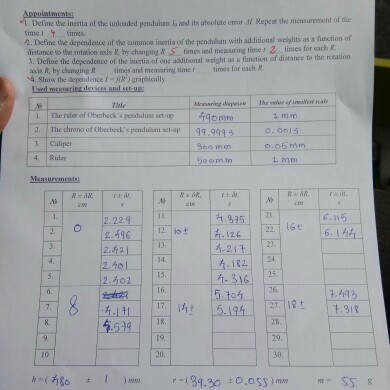 Appointments:
*1. Define the inertia of the unloaded pendulum I₀ and its absolute error ΔI. Repeat the measurement of the
time t 4 times.
*2. Define the dependence of the common inertia of the pendulum with additional weights as a function of
distance to the rotation axis R, by changing R 5 times and measuring time t 2 times for each R.
3. Define the inertia of one additional weight as a function of distance to the rotation
axis R, by changing R times and measuring time t times for each R.
*4. Show the dependence I = f(R²) graphically.
Used measuring devices and set-up:
№ Title Measuring diapason The value of smallest scale
1. The ruler of Oberbeck's pendulum set-up 490mm 1 mm
2. The chrono of Oberbeck's pendulum set-up 99.999 s 0.001s
3. Caliper 300mm 0.05mm
4. Ruler 500mm 1 mm
Measurements:
№ R ± δR, cm t ± δt, s № R ± δR, cm t ± δt, s № R ± δR, cm t ± δt, s
1. 0 2.229 11. 10± 4.375 21. 16± 6.115
2. 2.496 12. 4.126 22. 6.144
3. 2.421 13. 4.217 23.
4. 2.401 14. 4.182 24.
5. 2.402 15. 4.316 25.
6. 8 16. 14± 5.704 26. 18± 7.493
7. 4.171 17. 5.194 27. 7.318
8. 4.579 18. 28.
9. 19. 29.
10 20. 30.
h = ( 480 ± 1 ) mm r = (39.30 ± 0.055) mm m = 55 g